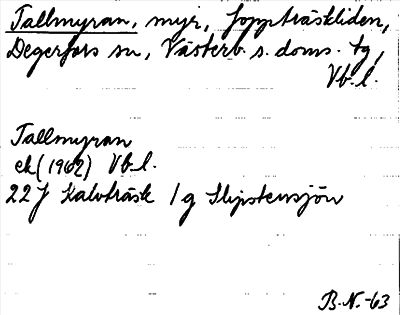 Tallmyran, myr, Joppträskliden,
Degerfors sn, Västerb. s. doms. tg,
Vb. l.
Tallmyran
ek (1962) Vb. l.
22 J Kalvträsk 1 g Slipstensjön
B.N.-63